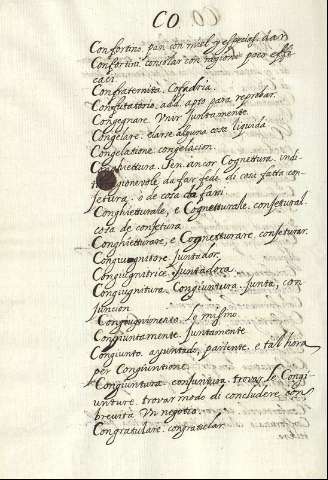 CO
Confortino. pan con miel, y especias. dar
Confortini, consolar con raçione poco effi
caci.
Confraternità. Cofadria.
Confutatorio. add. apto para reprobar.
Congegnare. Vnir juntamente.
Congelare. elarse alguna cosa liquida
Congelatione. congelacion.
Conghiettura. Sen ancor Cognettura. indi
ragionevole da far fede di cosa fatta con
jetura. o de cosa da farsi.
Conghietturale, e Cognetturale. conjetural.
cosa de conjetura
Conghietturare, e Cognetturare. conjeturar.
Congiugnitore. juntador.
Congiugnitrice. juntadora
Congiugnitura. Congiuntura. junta, con
juncion
Congiugnimento. Lo mismo
Congiuntamente. juntamente
Congiunto. ajuntado, pariente. e tal hora
per Congiuntione.
Congiuntura. conjuntura. trovar le Congi
unture. trovar modo di concludere con
brevità Vn negotio.
Congratulare. congratular